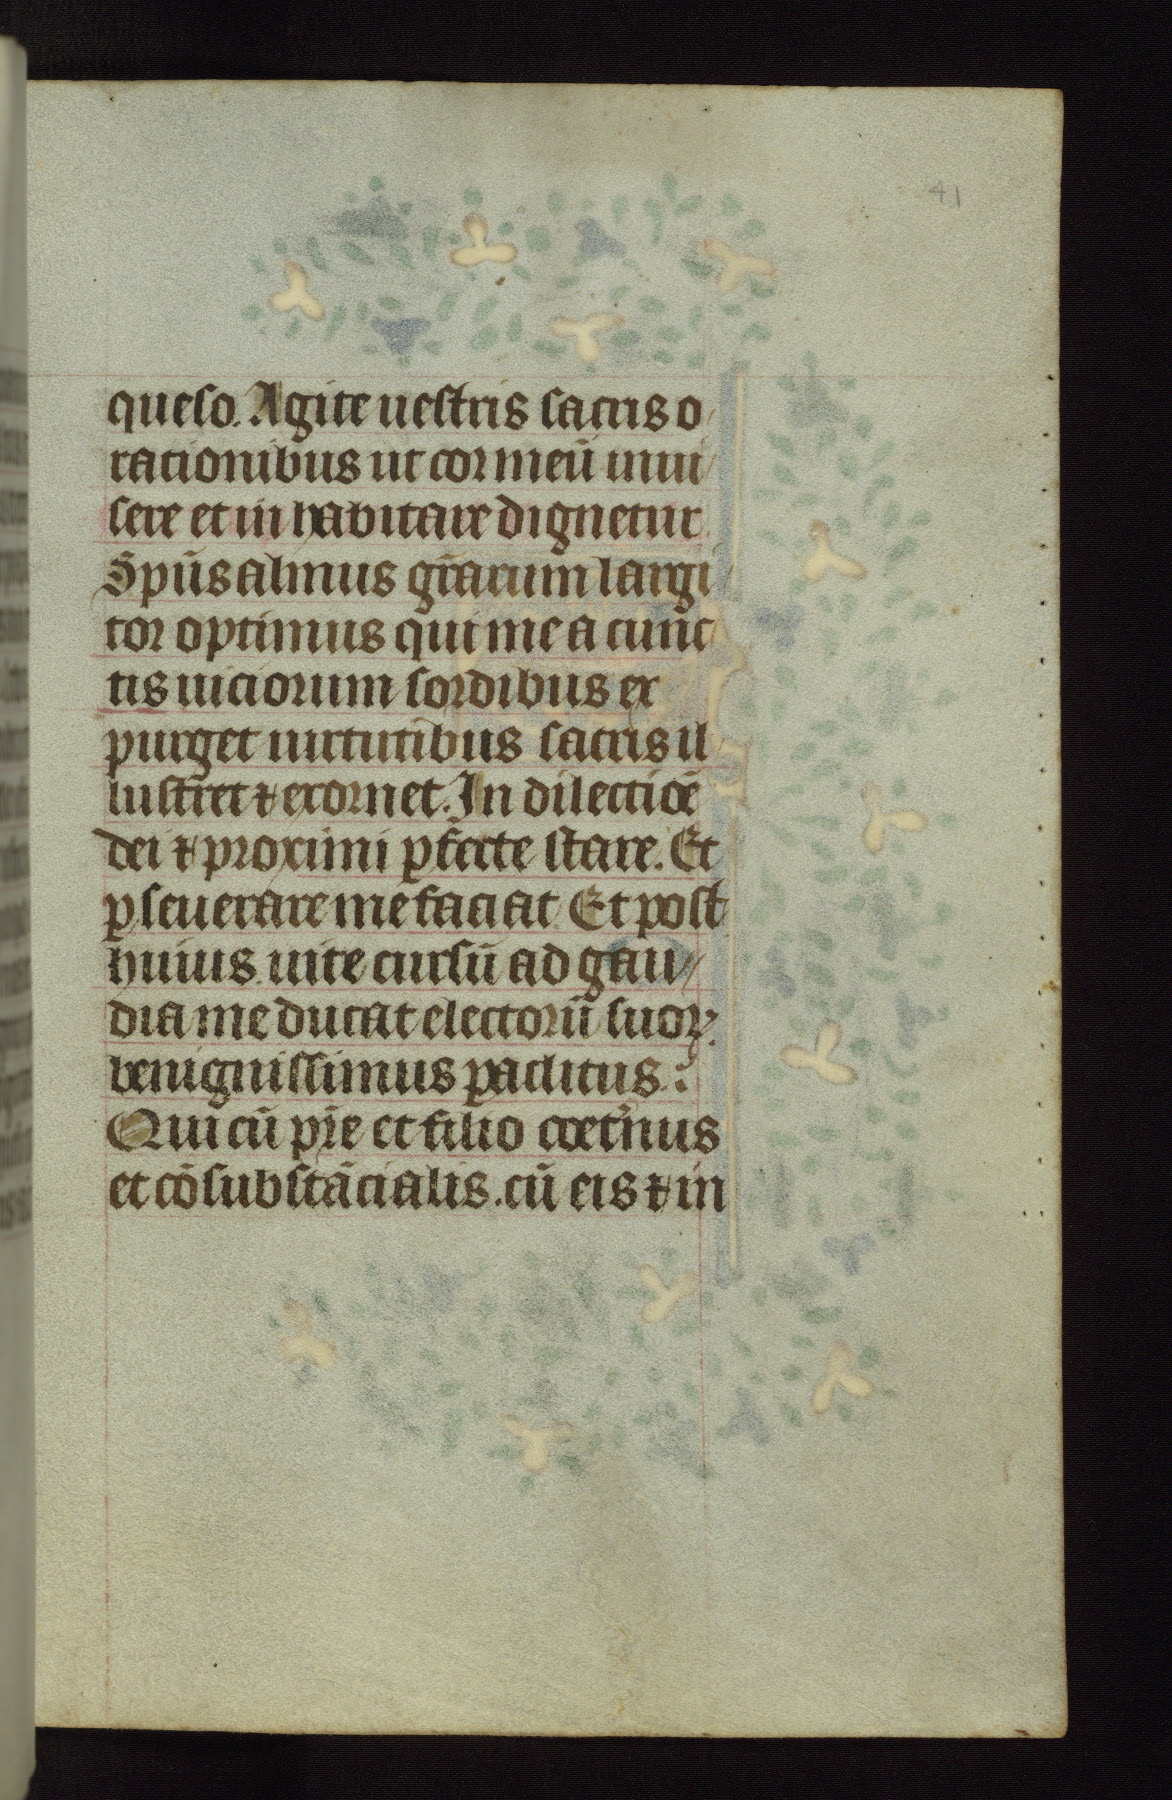 41
queso. Agite uestris sacris o
rationibus ut cor meū inui
sere et in habitare dignetur
Sp̄us almus gr̄arum largi
tor optimus qui me a cunc
tis uiciorum sordibus ex
purget uirtutibus sacris il
lustret ⁊ exornet. In dilectiōe
dei ⁊ proximi ꝑfecte stare. Et
ꝑseuerare me faciat Et post
huius uite cursū ad gau
dia me ducat electorū suoꝝ
benignissimus ꝑaclitus :
Qui cū pr̄e et filio coet̄nus
et cōsubstācialis. cū eis ⁊ in